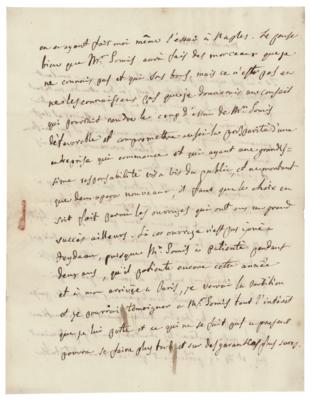 en ayant fait moi même l'essai à Naples. Je pense
bien que Mr Louis aura fait des morceaux que je
ne connais pas et qui sont bons, mais ce n'est pas en
ne les connaissant pas que je donnerais un conseil
qui pourrait rendre le coup d'essai de Mr Louis
défavorable et compromettre aussi la prospérité d'une
entreprise qui commence et qui ayant une grandis-
sime responsabilité vis à vis du public, et ne produisant
que deux opera nouveaux, il faut que le choix en
soit fait parmi les ouvrages qui ont eu un grand
succès ailleurs. Si cet ouvrage n'est pas joué à
Feydeau, puisque Mr Louis a patienté pendant
deux ans, qu'il patiente encore cette année
et à mon arrivée à Paris, je verrai la partition
et je pourrai témoigner à Mr Louis tout l'intérêt
que je lui porte et ce qui ne se fait pas à present
pourra se faire plus tard et sur des garanties plus sures.